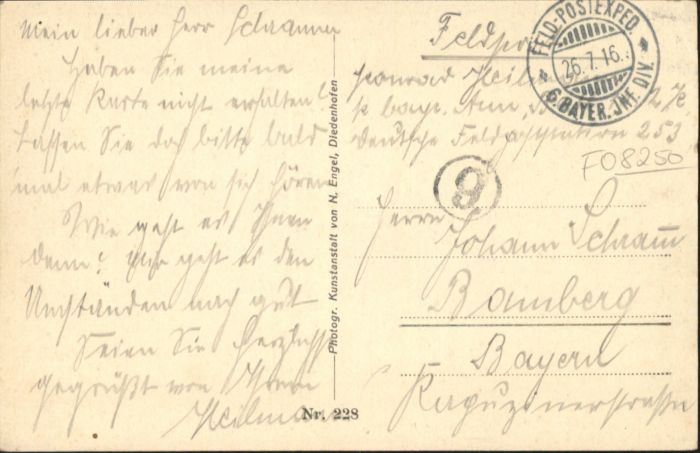 Mein lieber Herr Schramm
Haben Sie meine
letzte Karte nicht erhalten?
Lassen Sie doch bitte bald
mal etwas von sich hören
Wie geht es Ihnen
denn? Mir geht es den
Umständen nach gut
Seien Sie herzlichst
gegrüßt von Ihrem
Heilman
Photogr. Kunstanstalt von N. Engel, Diedenhofen
Nr. 228
Feldpo
FELD-POSTEXPED.
26.7.16.
6. BAYER. INF. DIV.
Konrad Heilm
K. bayr. 2. K.
deutsche Feldpoststation 253
F08250
9
Herrn
Johann Schram̄
Bamberg
Bayern
Kapuzinerstraße